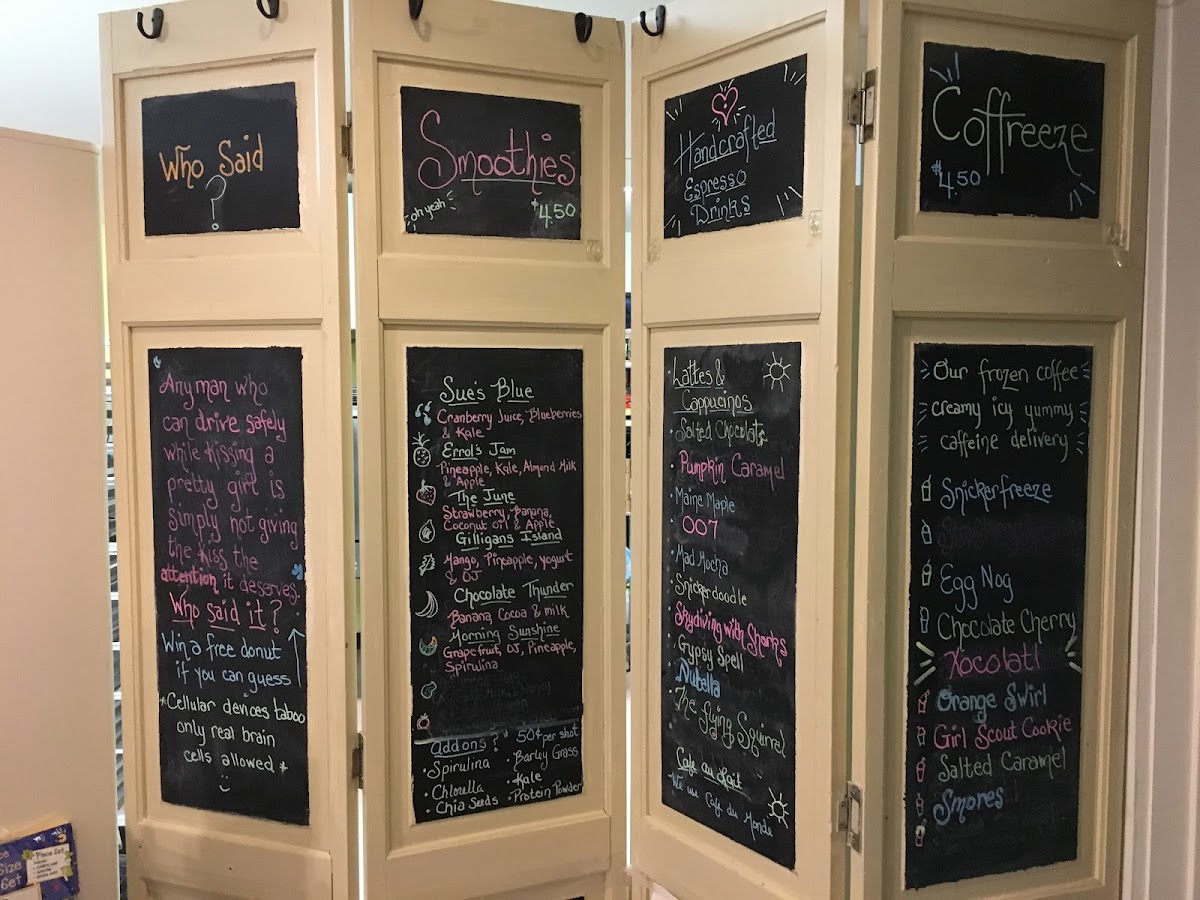 Who Said
?
Any man who
can drive safely
while kissing a
pretty girl is
simply not giving
the kiss the
attention it deserves.
Who said it?
Win a free donut
if you can guess
*Cellular devices taboo
only real brain
cells allowed *
Smoothies
oh yeah
$4.50
Sue's Blue
Cranberry Juice, Blueberries
& Kale
Errol's Jam
Pineapple, Kale, Almond Milk
& Apple
The June
Strawberry, Banana,
Coconut oil & Apple
Gilligans Island
Mango, Pineapple, yogurt
& OJ
Chocolate Thunder
Banana, Cocoa & milk
Morning Sunshine
Grapefruit, OJ, Pineapple,
Spirulina
Addons? 50¢ per shot
• Spirulina
• Barley Grass
• Chlorella
• Kale
• Chia Seeds
• Protein Powder
Handcrafted
Espresso
Drinks
• Lattes &
Cappucinos
• Salted Chocolate
• Pumpkin Caramel
• Maine Maple
• 007
• Mad Mocha
• Snickerdoodle
• Skydiving with Sharks
• Grypsy Spell
• Nutella
• The Flying Squirrel
Cafe au Lait
We use Cafe du Monde
Coffreeze
$4.50
Our frozen coffee
creamy icy yummy
caffeine delivery
Snickerfreeze
Egg Nog
Chocolate Cherry
Xocolatl
Orange Swirl
Girl Scout Cookie
Salted Caramel
Smores
Piece Set